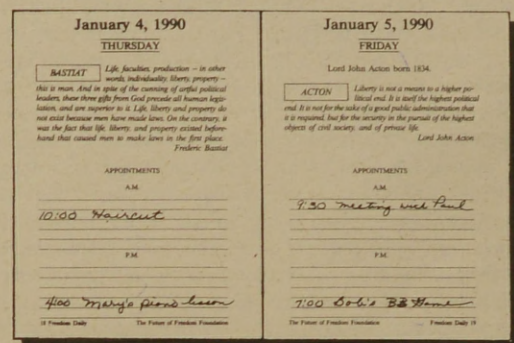 January 4, 1990
THURSDAY
BASTIAT
Life, faculties, production — in other
words, individuality, liberty, property —
this is man. And in spite of the cunning of artful political
leaders, these three gifts from God precede all human legis-
lation, and are superior to it. Life, liberty and property do
not exist because men have made laws. On the contrary, it
was the fact that life, liberty, and property existed before-
hand that caused men to make laws in the first place.
Frederic Bastiat
APPOINTMENTS
A.M.
10:00 Haircut
P.M.
4:00 Mary's piano lesson
18 Freedom Daily
The Future of Freedom Foundation
January 5, 1990
FRIDAY
Lord John Acton born 1834.
ACTON
Liberty is not a means to a higher po-
litical end. It is itself the highest political
end. It is not for the sake of a good public administration that
it is required, but for the security in the pursuit of the highest
objects of civil society, and of private life.
Lord John Acton
APPOINTMENTS
A.M.
9:30 meeting with Paul
P.M.
7:00 Bob's BB Game
The Future of Freedom Foundation
Freedom Daily 19